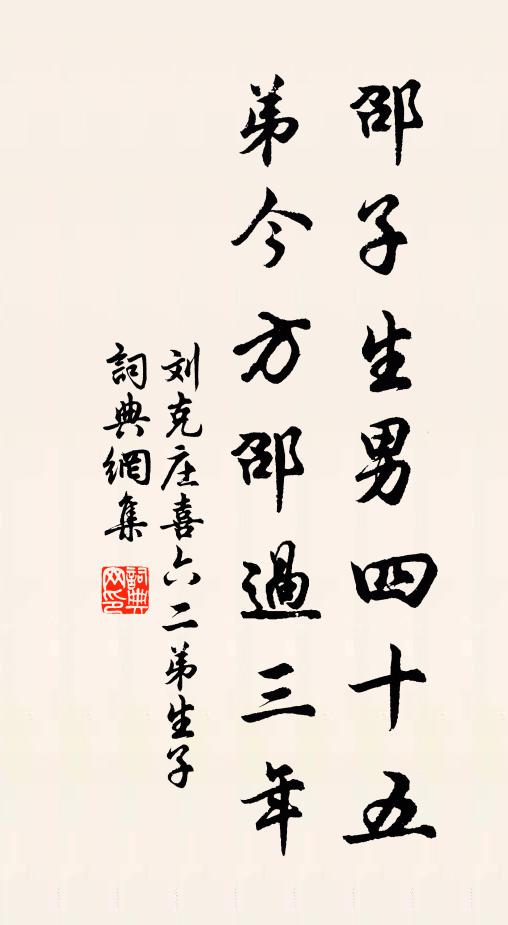 邵子生男四十五
弟今方邵過三年
刘克庄喜六二弟生子
詞典網集
詞典網印